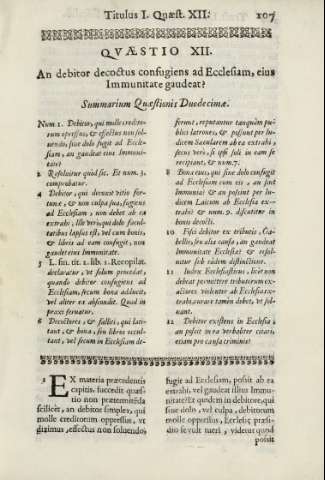 Titulus I. Quæst. XII. 107
QVÆSTIO XII.
An debitor decoctus confugiens ad Ecclesiam, eius
Immunitate gaudeat?
Summarium Quæstionis Duodecimæ.
Num. 1. Debitor, qui molle credito-
rum opressus, & effectus non sol-
uendo, sine dolo fugit ad Eccle-
siam, an gaudeat eius Immuni-
tate?
2 Resoluitur quòd sic. Et num. 3.
comprobatur.
4 Debitor, qui deuenit vitio for-
tunæ, & non culpa sua, fugiens
ad Ecclesiam, non debet ab ea
extrahi, Ille verò, qui dolo facul-
tatibus lapsus est, vel cum bonis,
& libris ad eam confugit, non
gaudet eius Immunitate.
5 L. fin. tit. 2. lib. 1. Recopilat.
declaratur, vt solum procedat,
quando debitor confugiens ad
Ecclesiam, secum bona adducit,
vel aliter ea abscondit. Quid in
praxi seruatur.
6 Decoctores, & falliti, qui lati-
tant, & bona, seu libros occul-
tant, vel secum in Ecclesiam de-
ferunt, reputantur tanquàm pu-
blici latrones, & possunt per Iu-
dicem Sæcularem ab ea extrahi,
secus verò, si ipsi soli in eam se
recipiunt, & num. 7.
8 Banearij, qui sine dolo confugit
ad Ecclesiam cum eis, an sint
Immuni & an possint per Iu-
dicem Laicum ab Ecclesia ex-
trahi & num. 9. discutitur in
bonis decocti.
10 Fisci debitor ex tributis, Ga-
bellis, seu alia causa, an gaudeat
Immunitate Ecclesiæ? & resol-
uitur sub eadem distinctione.
11 Iudex Ecclesiasticus, licèt non
debeat permittere tributorum ex-
actores violenter ab Ecclesia ex-
trahi, curare tamen debet, vt sol-
uant.
12 Debitor existens in Ecclesia,
an possit in ea verbaliter citari,
etiam pro causa criminis?
1 EX materia præcedentis
capitis, succedit quæs-
tio non prætermittēda
scilicèt, an debitor simplex, qui
molle creditorum oppressus, vt
diximus, effectus non soluendo,
fugit ad Ecclesiam, possit ab ea
extrahi, vel gaudeat illius Immu-
nitate? Et quidem in debitore, qui
sine dolo, vel culpa, debitorum
molle oppressus, Ecclesiæ præsi-
dio se vult tueri, videtur quod
possit